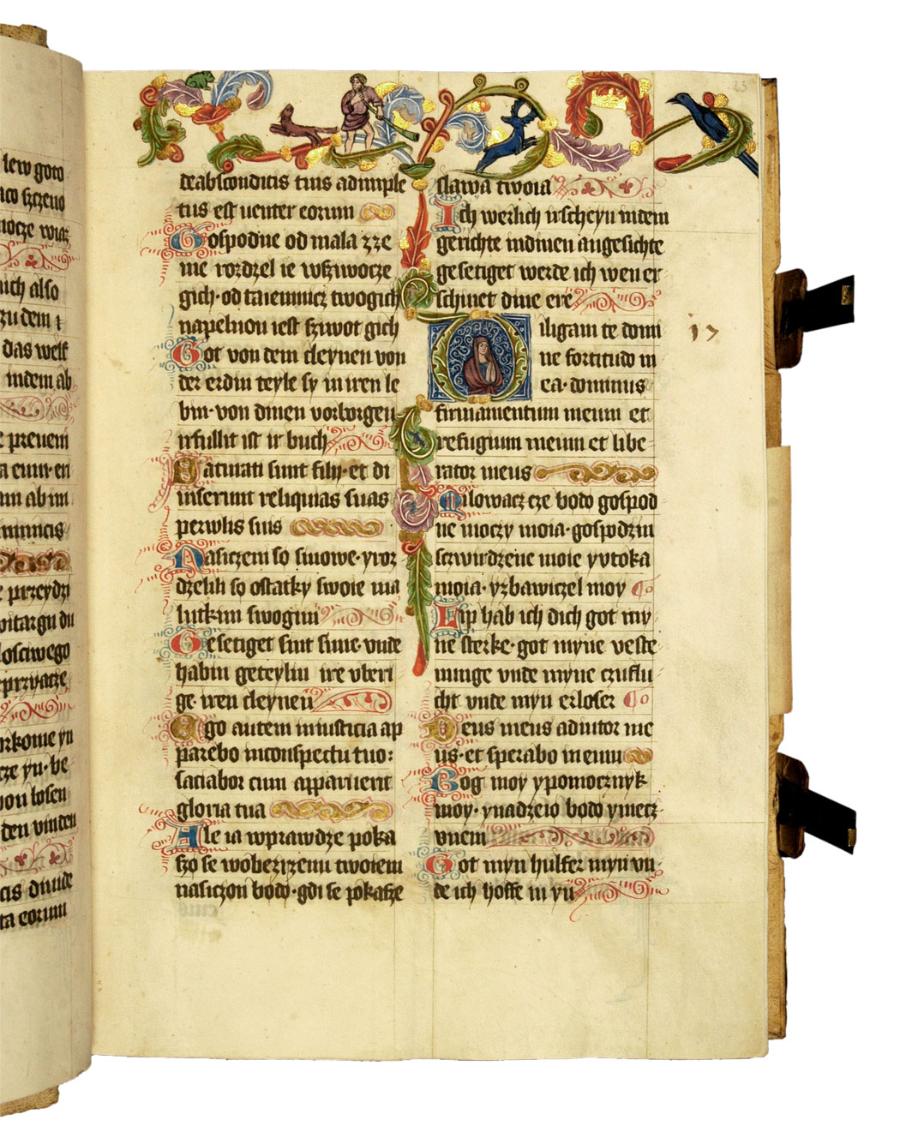 lew goto
nich also
zu dem i
das welt
indem ab
e preueni
a eum en
przeydzi
osciwego
przyacze
cze yu be
von losen
den vinden
cis diuide
ta eorum
deabsconditis tuis adimple
tus est uenter eorum
Gospodne od mala zze
me rozdzel ie wszywocze
gich od taiemnicz twogich
napelnon iest szywot gich
Got von dem cleynen von
der erdin teyle sy in iren le
bin von dinen vorborgen
irfullit ist ir buch
Saturati sunt filij et di
miserunt reliquias suas
perwlis suis
Nasiczeni so sinowe yroz
dzelili so ostatky swoie ma
lutkim swogim
Gesetiget sint sune vnde
habin geteylin ire vberi
ge iren cleynen
Ego autem in iusticia ap
parebo in conspectu tuo:
saciabor cum apparuerit
gloria tua
Ale ia wprawdze poka
szo se wobezrzenu twoiem
nasiczon bodo gdi se pokasze
slawa twoia
Ich werlich irscheyn in dem
gerichte in dinen angesichte
gesetiget werde ich wen er
schinet dine ere
Diligam te domi
ne fortitudo m
ea dominus
firmamentum meum et
refugium meum et libe
rator meus
Milowacz cze bodo gospod
ne moczy moia gospodzin
stwirdzene moie yvtoka
moia yzbawiczel moy
Lip hab ich dich got my
ne sterke got myne veste
nunge vnde myne czuflu
cht vnde myn erloser
Deus meus adiutor me
us et sperabo in eum
Bog moy ypomocznyk
moy ynadzeio bodo ymecz
wnem
Got myn hulfer myn vn
de ich hoffe in yn
17